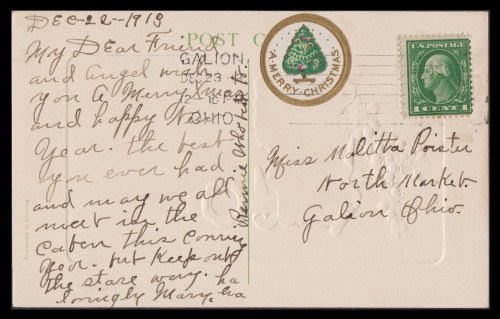 DEC-22-1913
My Dear Friend
and Angel wish
you A Merry Xmas
and happy New
Year. the best
you ever had
and may we all
meet in the
caben this coming
Year. but keep out
the stare way. ha
lovingly Mary. ha
POST C
GALION
DEC 23
12
OHIO
A MERRY CHRISTMAS
U.S. POSTAGE
1 CENT 1
Miss Malitta Poister
North Market.
Galion Ohio.